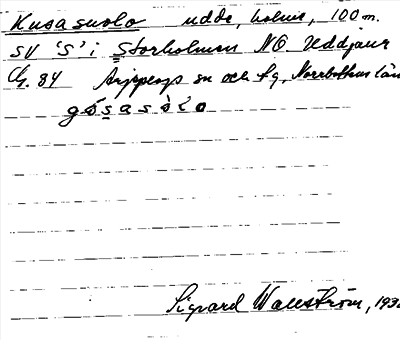 Kusasuolo udde, holme, 100 m.
SV 'S' i Storholmen NO Uddjaur
84 Arjeplogs sn och fg, Norrbottens län
Sigvard Wallström, 193